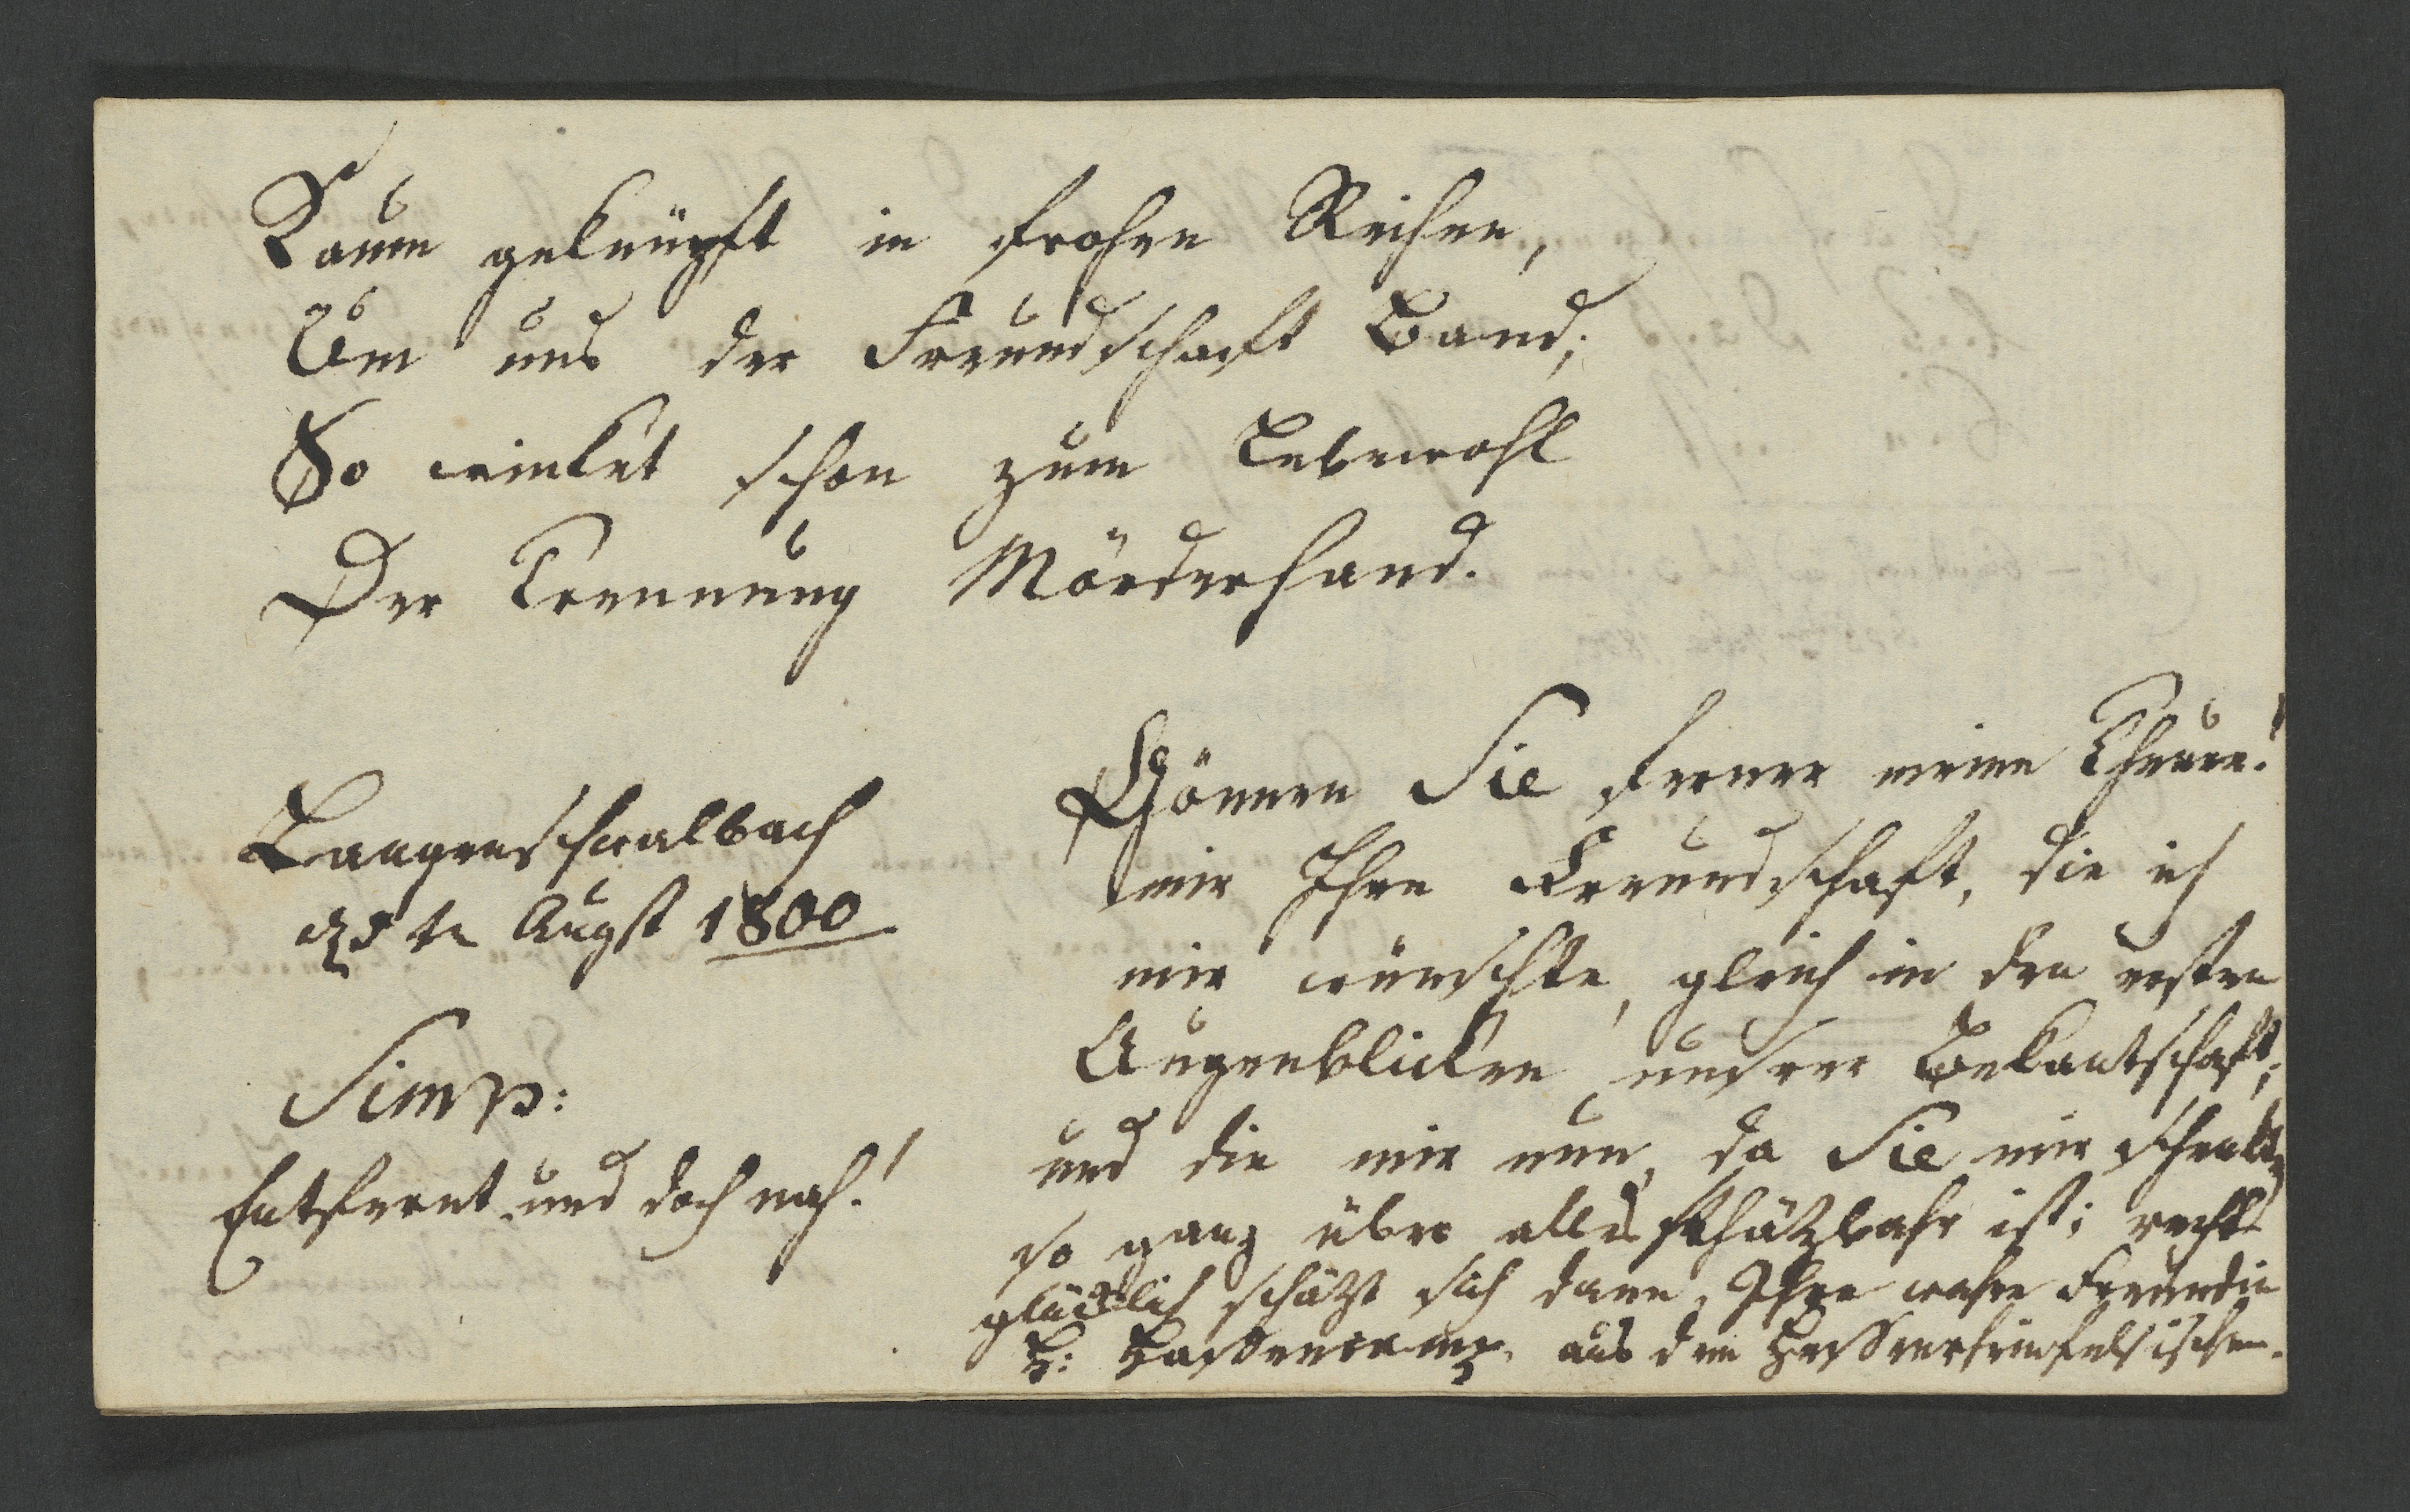 Kaum geknüpft in frohen Reihen,
Um uns der Freundschaft Band;
So winket schon zum Lebewohl
Der Trennung Mörderhand.
Langenschwalbach
te Augst 1800
Simp:
Entfernt und doch nah!
Gönnen Sie ferner meine Theure!
mir Ihre Freundschaft, die ich
mir wünschte, gleich in den ersten
Augenblicken unsrer Bekantschaft;
und die mir nun, da Sie mir schenkten
so ganz über alles schätzbahr ist; recht
glücklich schätzt sich dann, Ihre wahre Freundin
aus dem